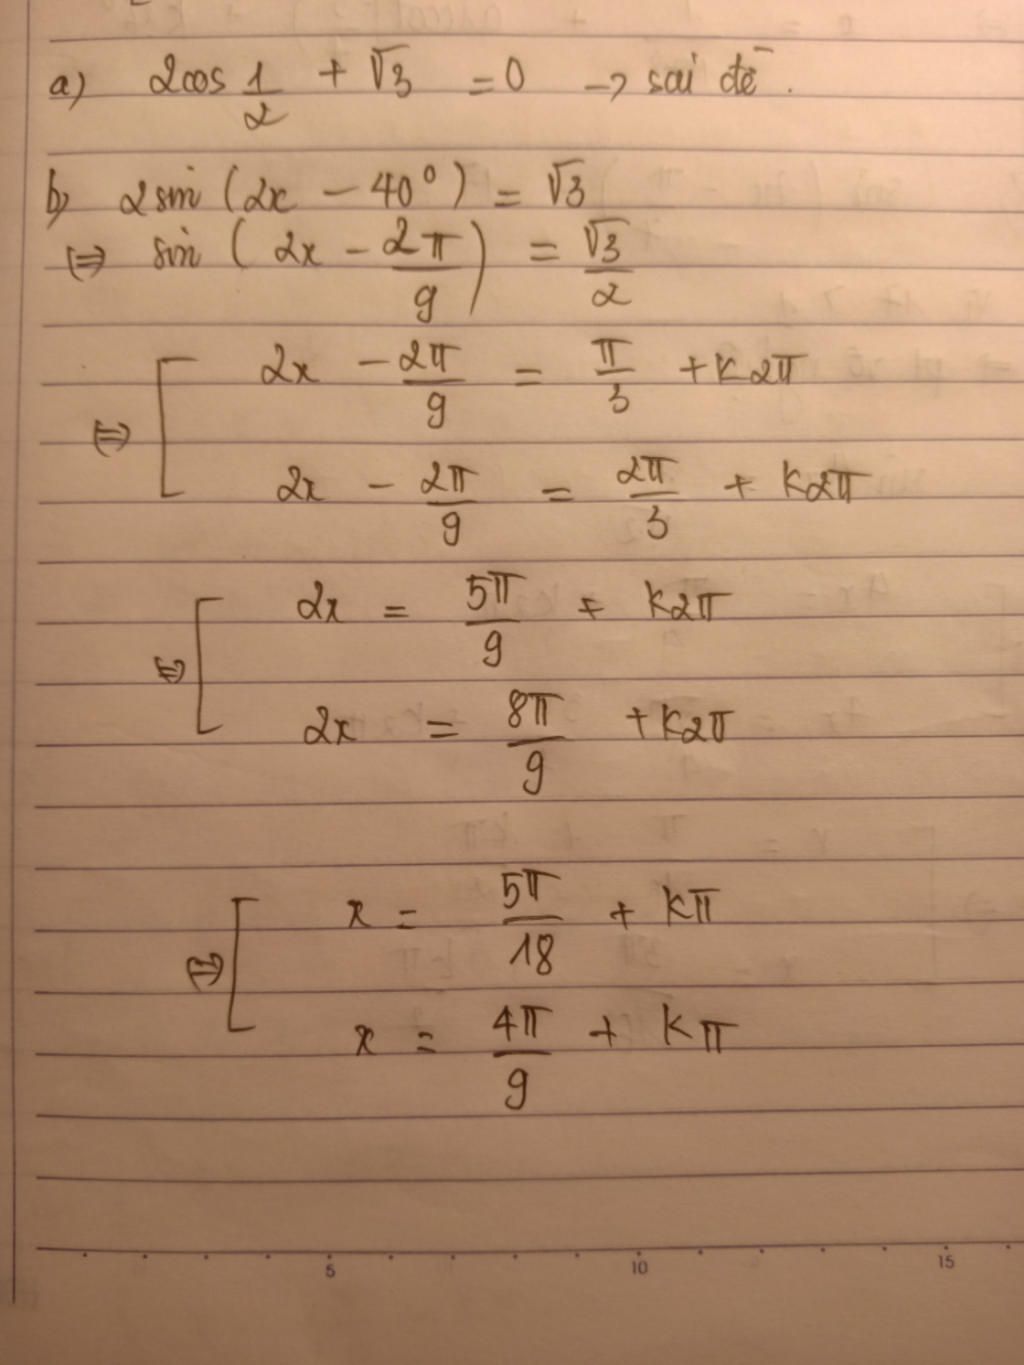 a) 2cos 1/2 + √3 = 0 → sai đề.
b) 2sin (2x - 40°) = √3
⇔ sin (2x - 2π/9) = √3/2
⇔ [ 2x - 2π/9 = π/3 + k2π
2x - 2π/9 = 2π/3 + k2π
⇔ [ 2x = 5π/9 + k2π
2x = 8π/9 + k2π
⇔ [ x = 5π/18 + kπ
x = 4π/9 + kπ
5 10 15